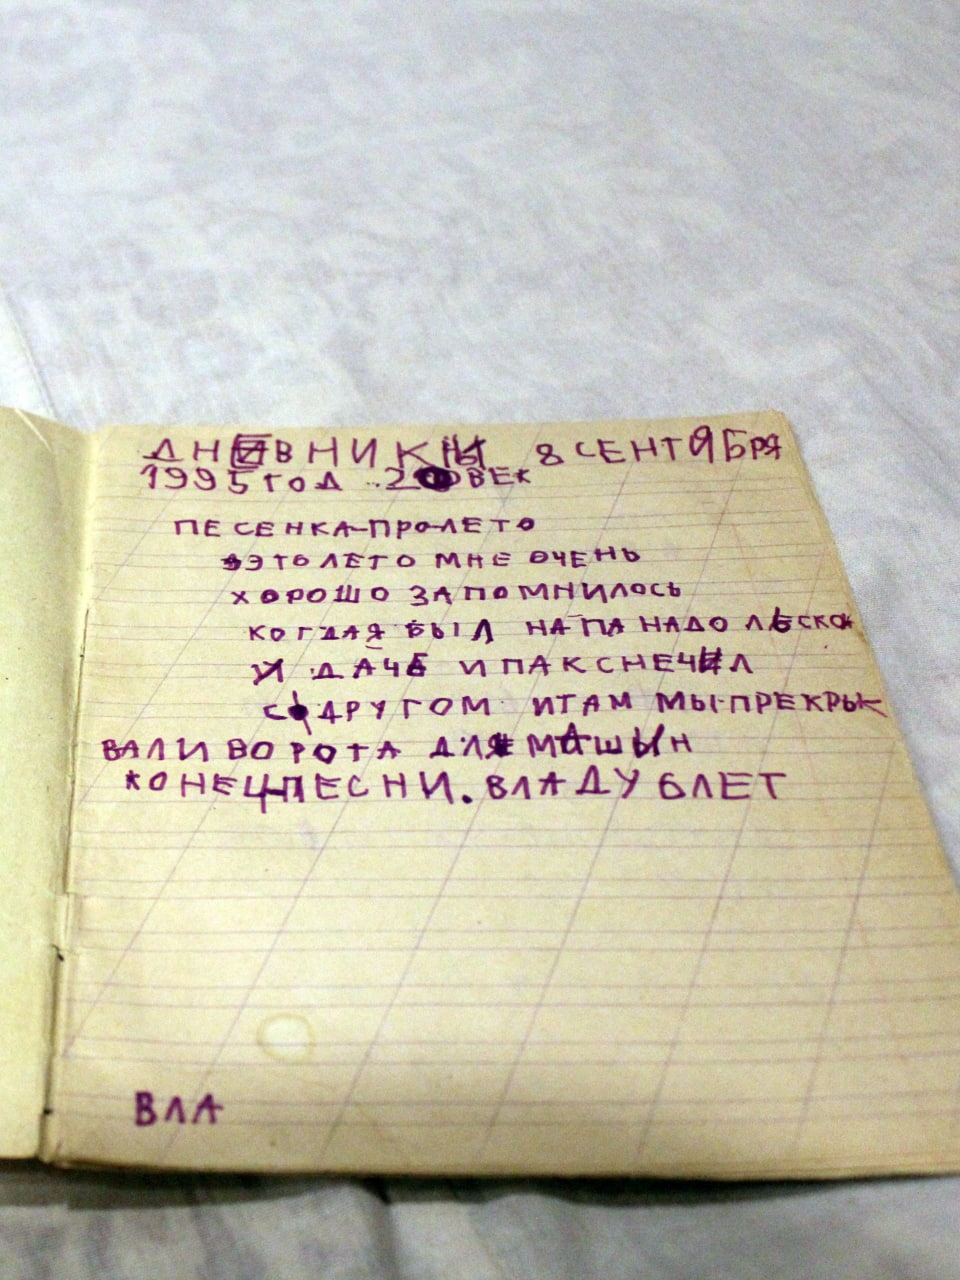 ДНЕВНИКИ 8 СЕНТЯБРЯ
1995 ГОД 20 ВЕК
ПЕСЕНКА-ПРО-ЛЕТО
ЭТО ЛЕТО МНЕ ОЧЕНЬ
ХОРОШО ЗАПОМНИЛОСЬ
КОГДА Я БЫЛ НА ПА НАДО ЛЕСКОЙ
И ДАЧЕ И ПАК СНЕЧИЛ
С ДРУГОМ И ТАМ МЫ ПРЕКРЫК
ВАЛИ ВОРОТА ДЛЯ МАШЫН
КОНЕЦ ПЕСНИ. ВЛАДУ 6 ЛЕТ
ВЛА